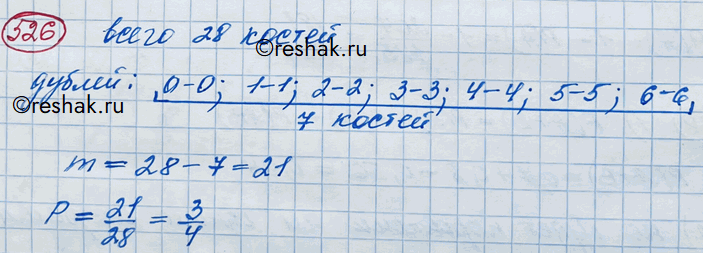 526 всего 28 костей
©reshak.ru
дублей: 0-0; 1-1; 2-2; 3-3; 4-4; 5-5; 6-6,
©reshak.ru
7 костей
m = 28 - 7 = 21
P = 21/28 = 3/4